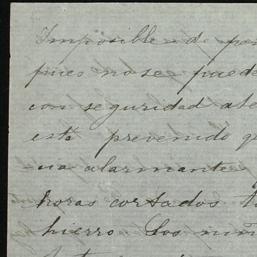 Imposible de
pues no se puede
con seguridad
está prevenido q
na alarmante
horas cortados
hierro. Los